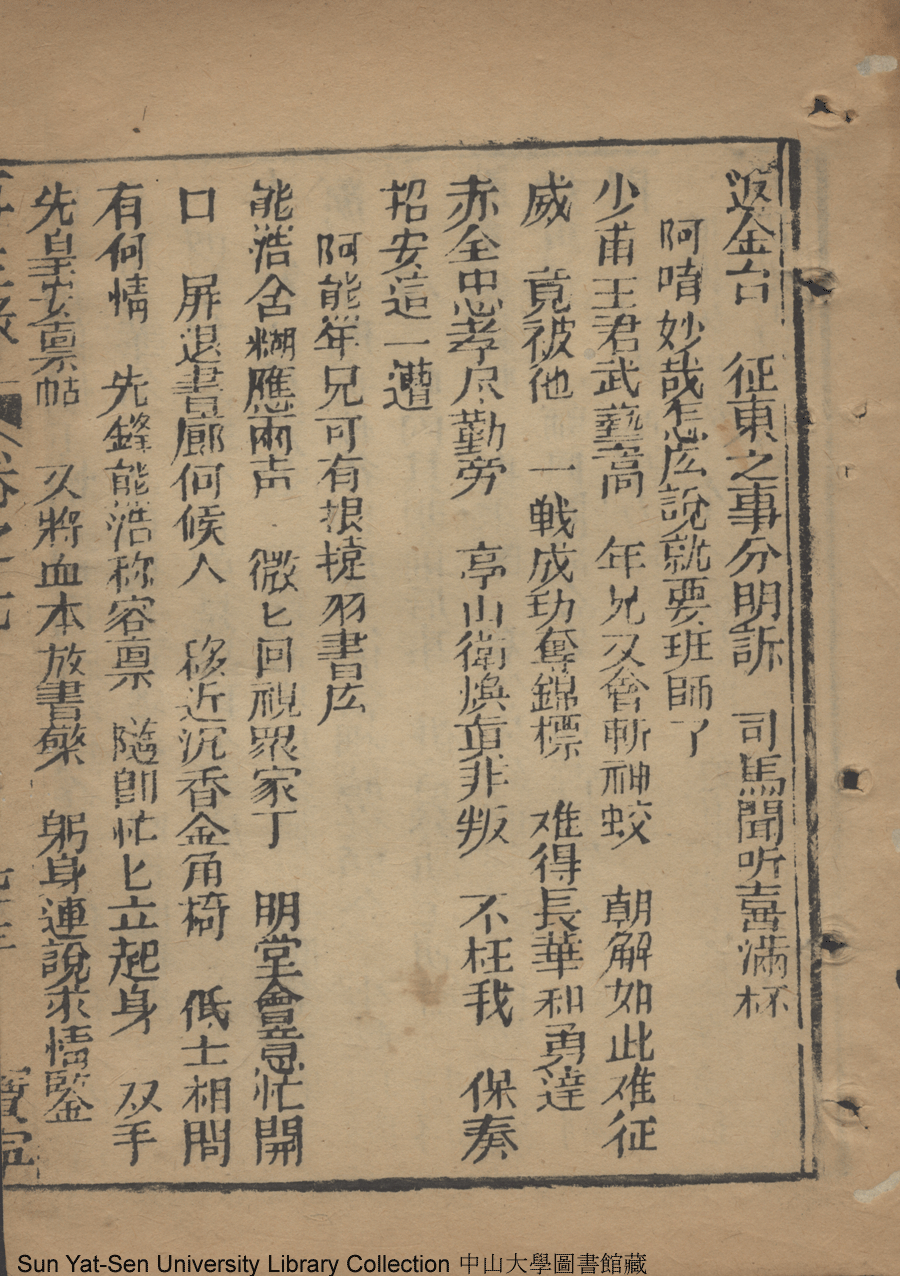 返金台　征東之事分明訴　司馬聞听喜滿杯
阿唷妙哉怎庅說就要班師了
少甫王君武藝高　年兄又會斬神蛟　朝觧如此难征
威　竟被他　一戦成功奪錦標　难得長華和勇達
赤全忠孝尽勤劳　亭山衛煥眞非叛　不枉我　保奏
招安這一遭
阿熊年兄可有根搃羽書庅
熊浩含糊應兩声　微匕回視眾家丁　明堂會意忙開
口　屏退書廊伺候人　移近沉香金角椅　低士相問
有何情　先鋒熊浩称容禀　隨即忙匕立起身　双手
先呈安禀帖　又将血本放書案　躬身連說求情鑒
卷之
寶寧
Sun Yat-Sen University Library Collection 中山大學圖書館藏